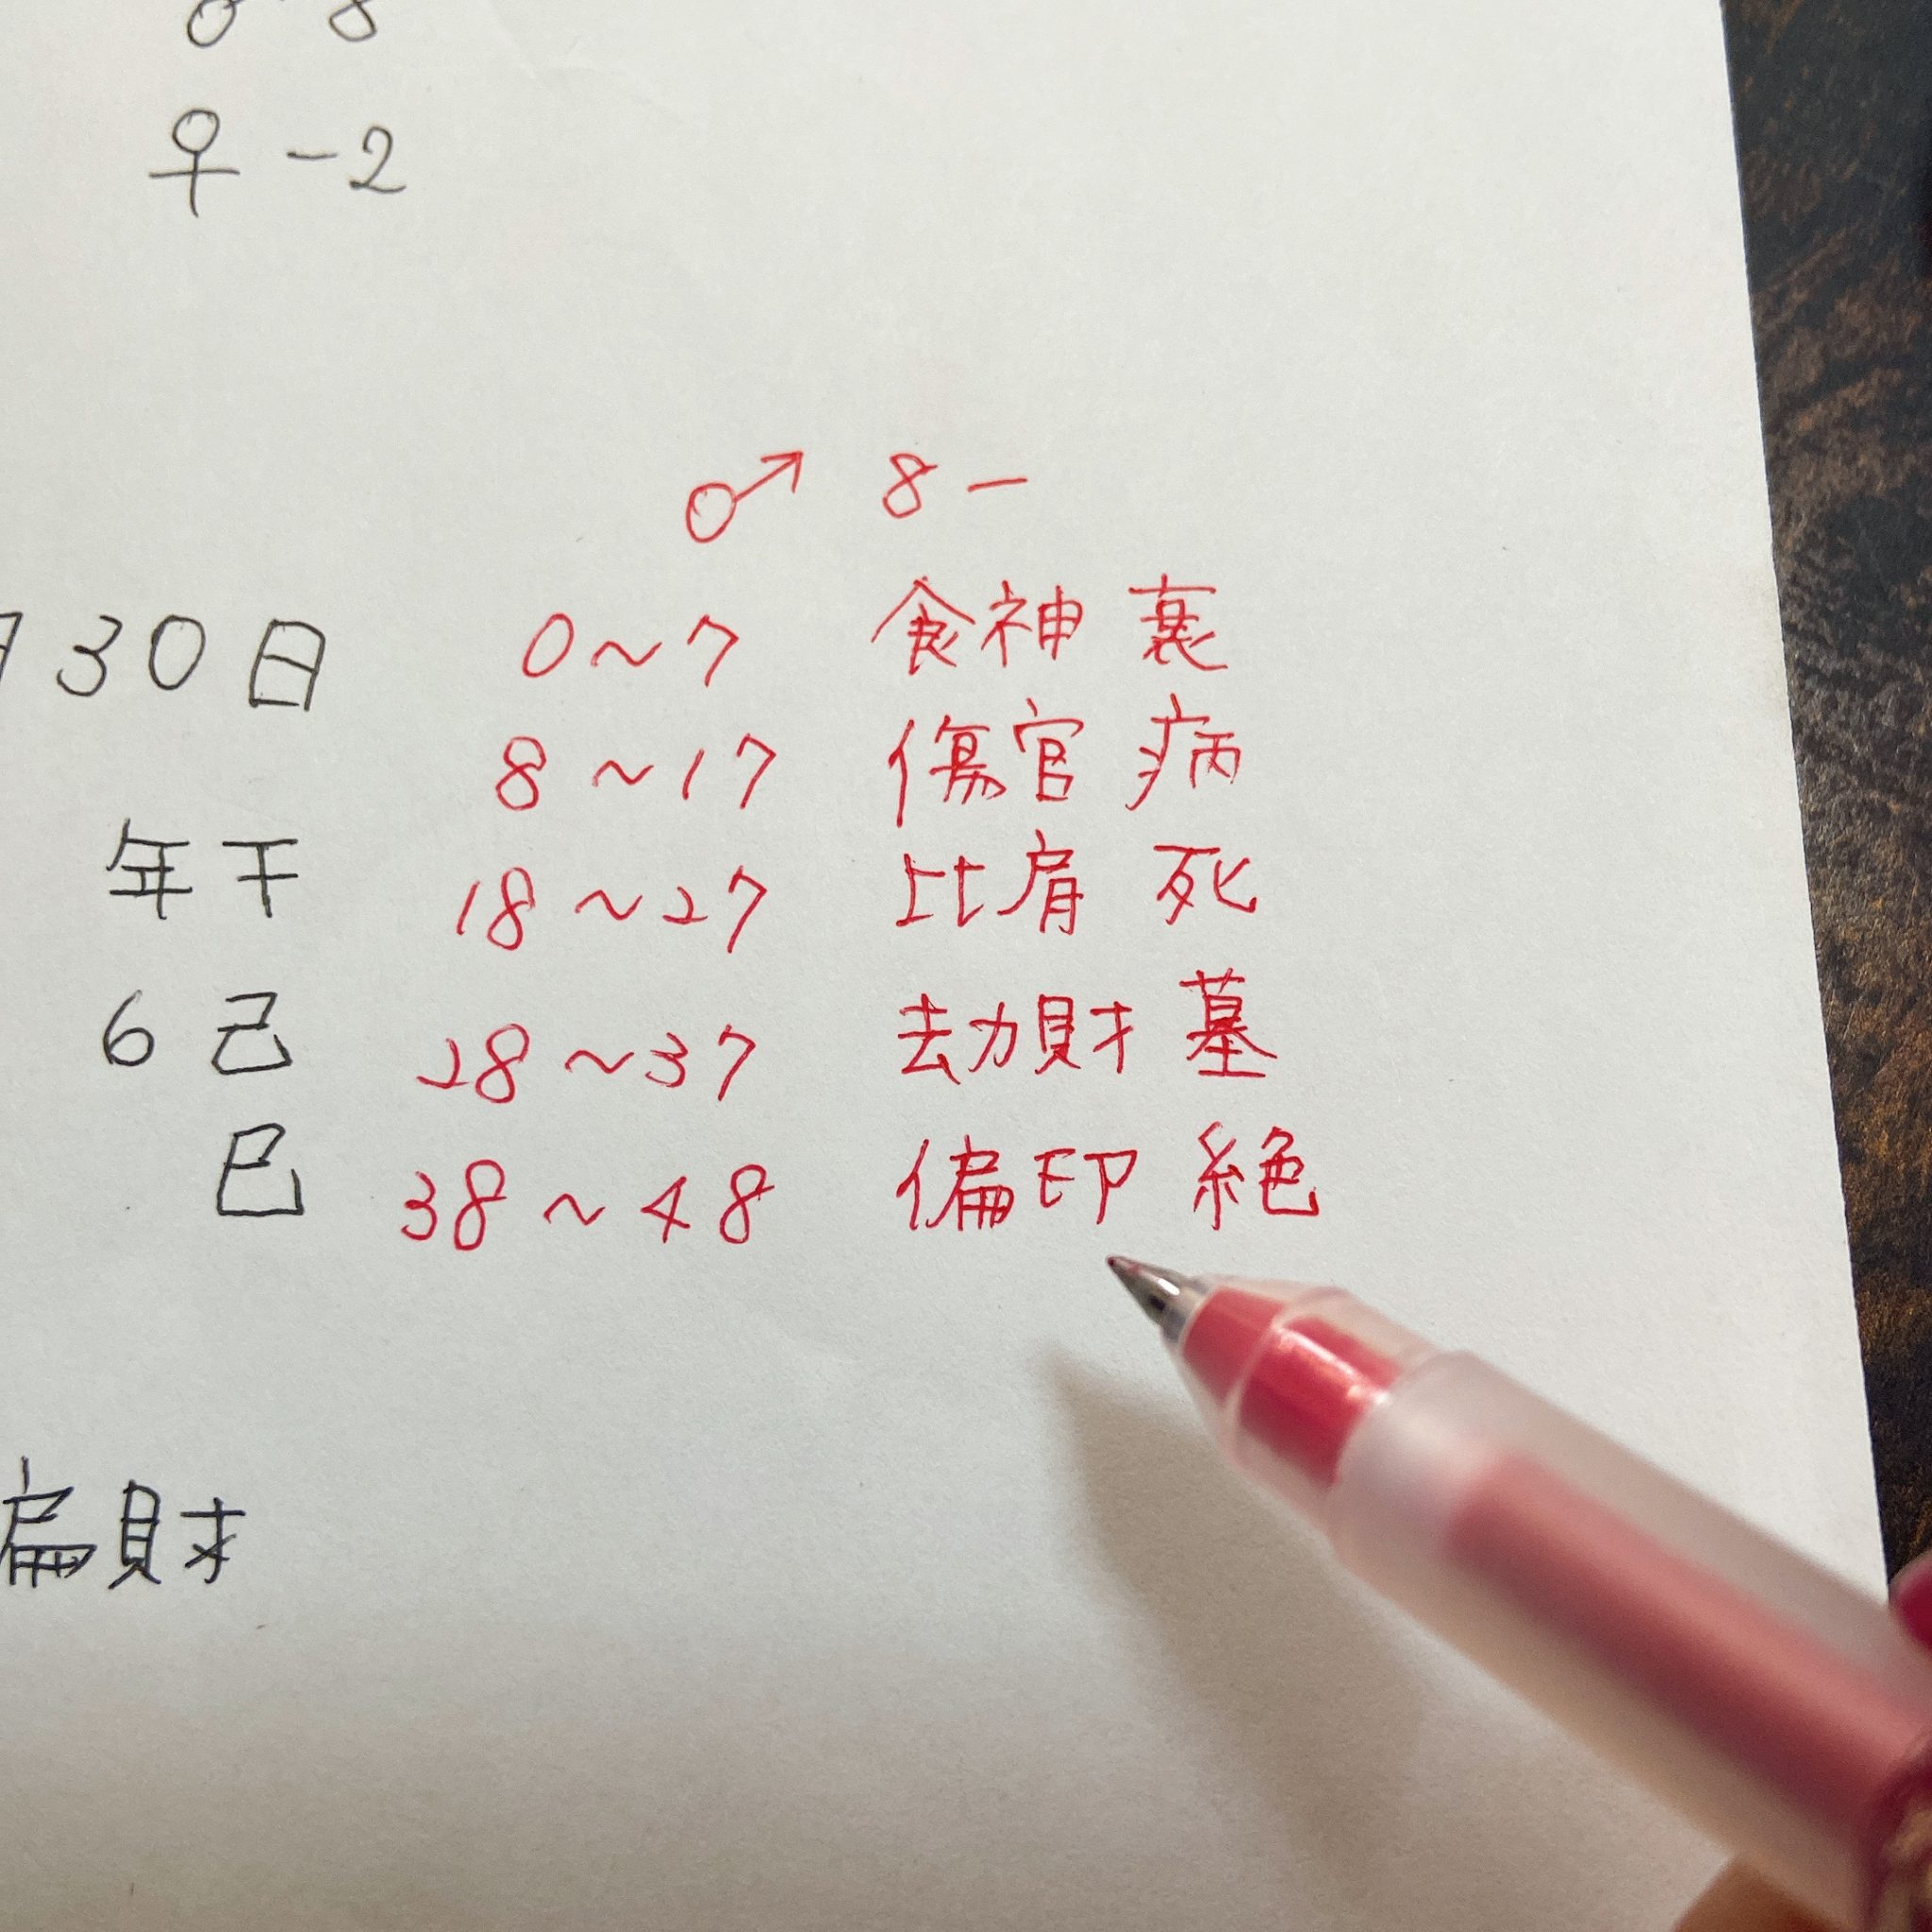 8
♀ -2
♂ 8 -
30日
0~7 食神 衰
8~17 傷官 病
年干
18~27 比肩 死
6 己
28~37 劫財 墓
巳
38~48 偏印 絶
財